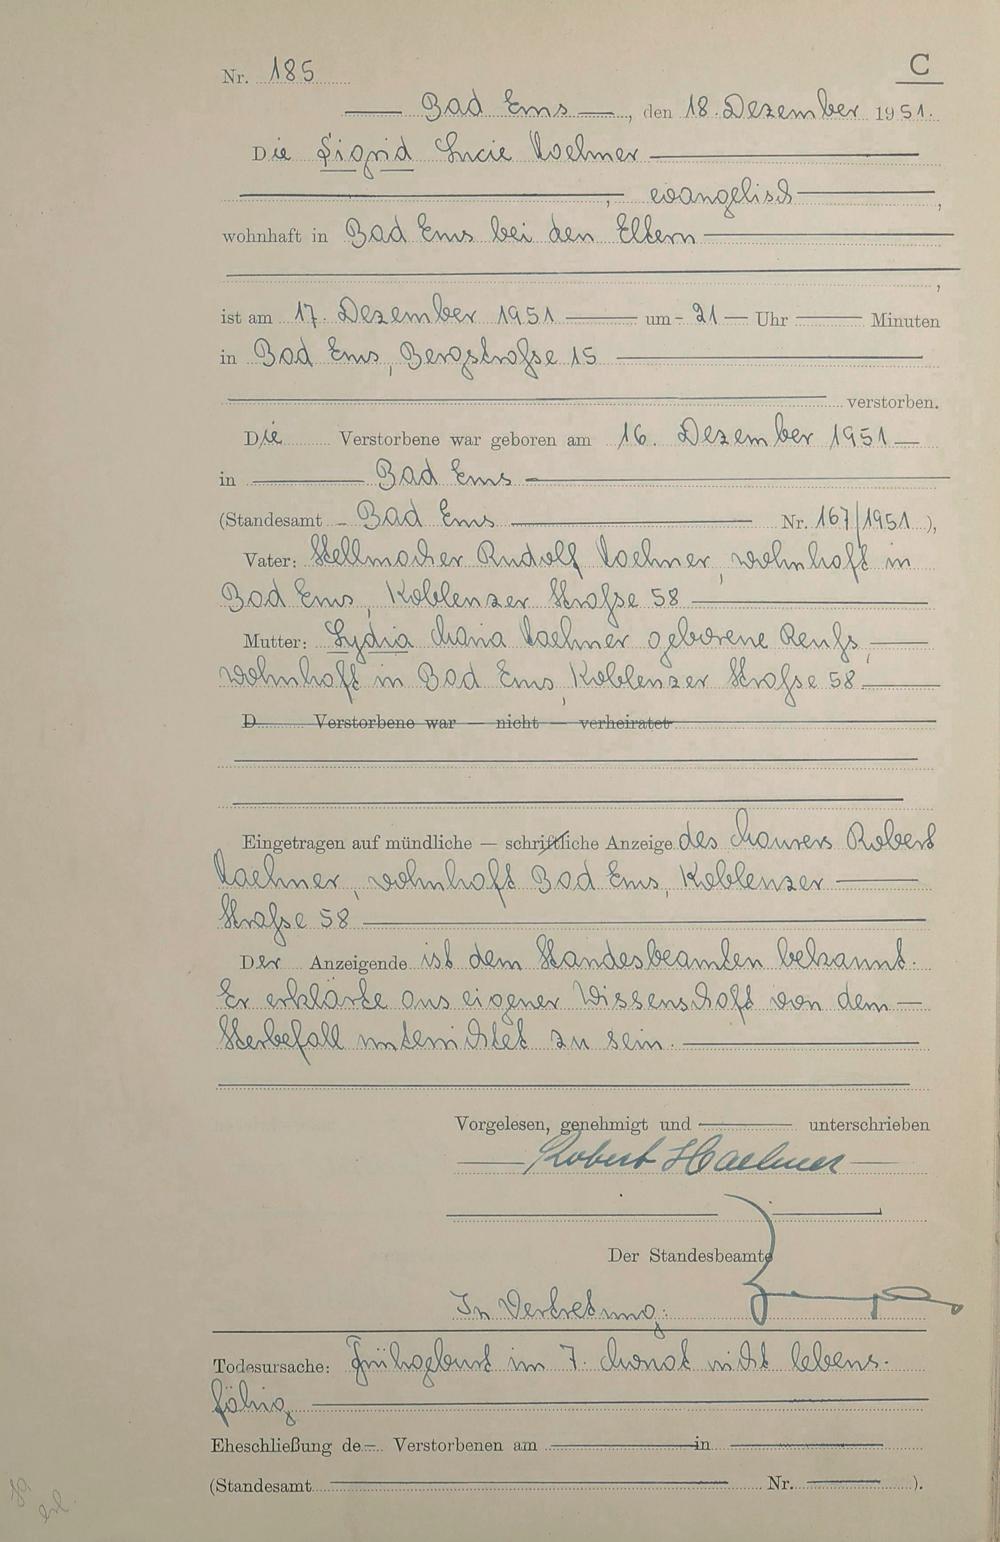 Nr. 185
C
Bad Ems, den 18. Dezember 1951.
Die Sigrid Lucie Haehner
, evangelisch ,
wohnhaft in Bad Ems bei den Eltern
,
ist am 17. Dezember 1951 um - 21 - Uhr Minuten
in Bad Ems, Bergstraße 15
verstorben.
Die Verstorbene war geboren am 16. Dezember 1951
in Bad Ems
(Standesamt Bad Ems Nr. 167/1951 ),
Vater: Stellmacher Rudolf Haehner, wohnhaft in
Bad Ems, Koblenzer Straße 58
Mutter: Lydia Maria Haehner geborene Reuß,
wohnhaft in Bad Ems, Koblenzer Straße 58
D Verstorbene war — nicht — verheiratet
Eingetragen auf mündliche — schriftliche Anzeige des Maurers Robert
Haehner, wohnhaft Bad Ems, Koblenzer
Straße 58
Der Anzeigende ist dem Standesbeamten bekannt.
Er erklärte aus eigener Wissenschaft von dem
Sterbefall unterrichtet zu sein.
Vorgelesen, genehmigt und unterschrieben
Robert Haehner
Der Standesbeamte
In Vertretung:
Todesursache: Frühgeburt im 7. Monat nicht lebens-
fähig
Eheschließung de Verstorbenen am in
(Standesamt Nr. ).